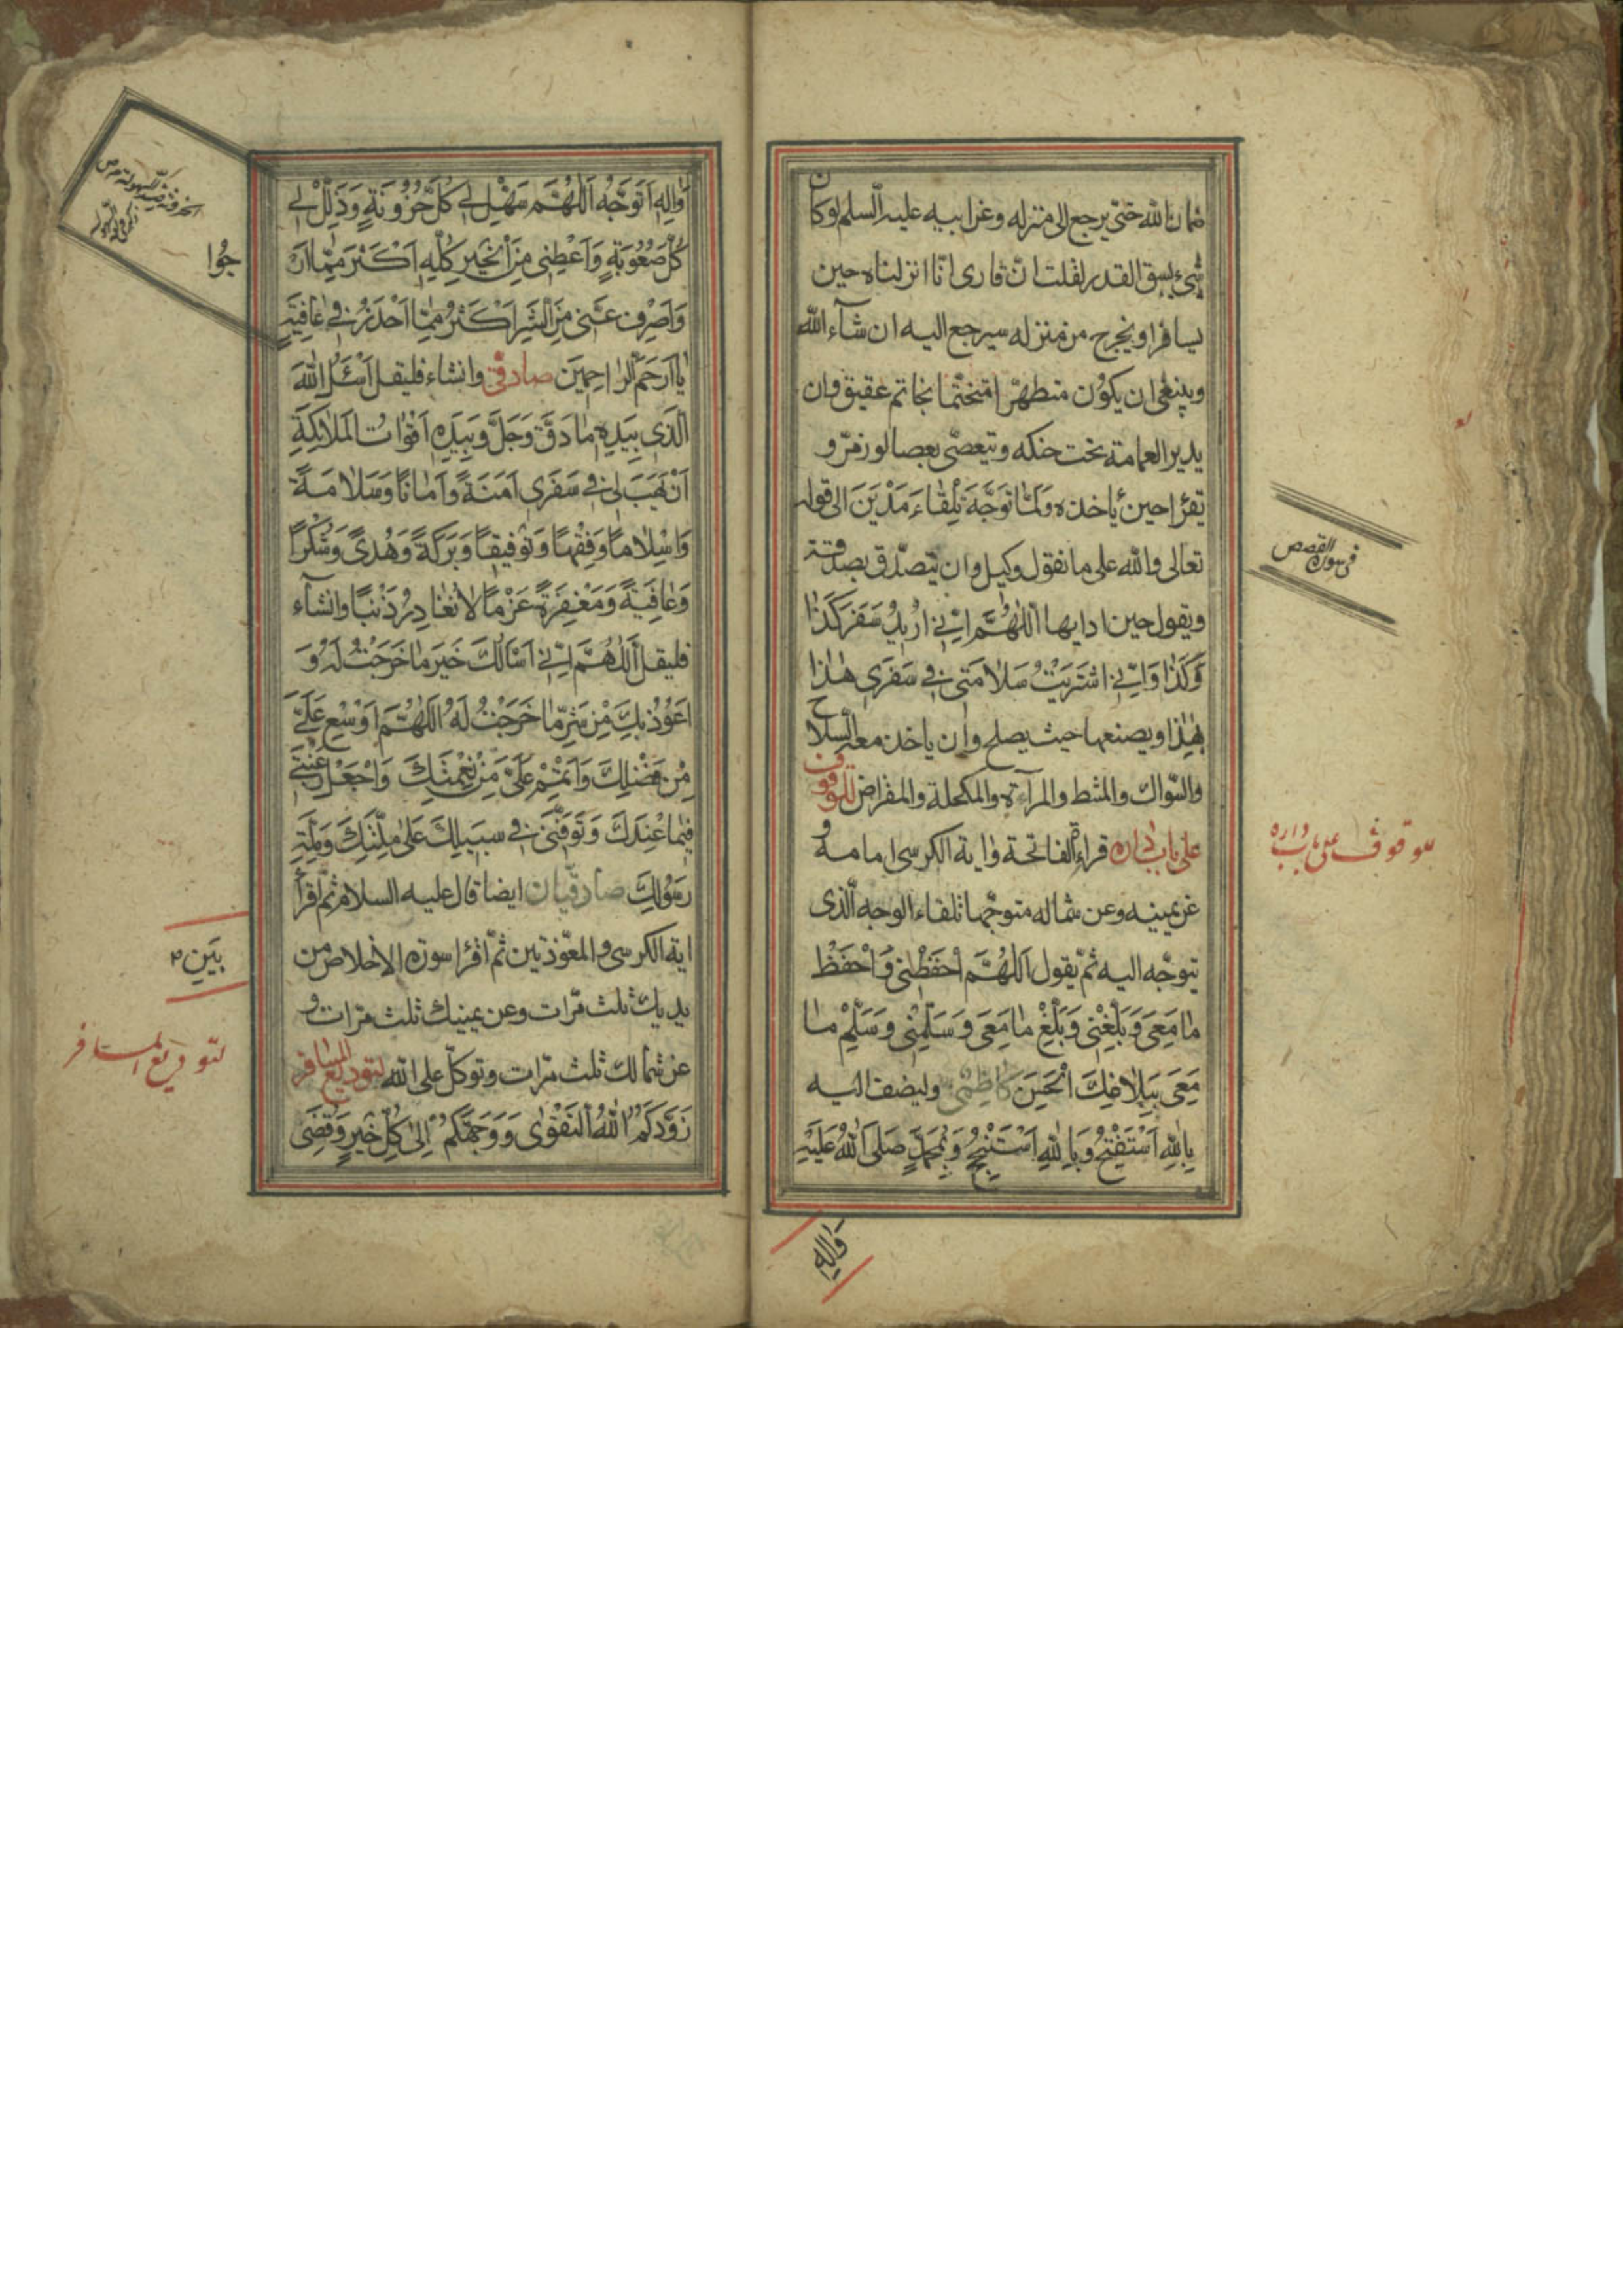 ضمان الله حتى يرجع الى منزله وعن ابيه عليه السلم لو كان
شئ يسبق القدر لقلت ان قارى انا انزلناه حين
يسافر او يخرج من منزله سيرجع اليه ان شآء الله
وينبغى ان يكون متطهرا متختما بخاتم عقيق وان
يدير العمامة تحت حنكه ويتعصى بعصا لوز مر و
يقرا حين ياخذه وَلَمَّا تَوَجَّهَ تِلْقَاءَ مَدْيَنَ الى قوله
تعالى والله على ما نقول وكيل وان يتصدق بصدقة
ويقول حين ادايها اَللّٰهُمَّ اِنّي اُرِيدُ سَفَرَ كَذَا
وَكَذَا وَاِنّي اشْتَرَيْتُ سَلَامَتِي فِي سَفَرِي هٰذَا
بِهٰذَا ويضعها حيث يصلح وان ياخذ معه السلاح
والسواك والمشط والمرآة والمكحلة والمقراض للوقوف
على باب داره قراءة الفاتحة واية الكرسى امامه و
عن يمينه وعن شماله متوجها تلقاء الوجه الذى
يتوجه اليه ثم يقول اَللّٰهُمَّ احْفَظْنِي وَاحْفَظْ
مَا مَعِيَ وَبَلِّغْنِي وَبَلِّغْ مَا مَعِيَ وَسَلِّمْنِي وَسَلِّمْ مَا
مَعِيَ بِبَلَاغِكَ الْحَسَنَ كاظمى وليضف اليه
بِاللّٰهِ اَسْتَفْتِحُ وَبِاللّٰهِ اَسْتَنْجِحُ وَبِمُحَمَّدٍ صَلَّى اللّٰهُ عَلَيْهِ
وَاٰلِهِ
فى سورة القصص
للوقوف على باب داره
وَاٰلِهِ اَتَوَجَّهُ اَللّٰهُمَّ سَهِّلْ لِي كُلَّ حُزُونَةٍ وَذَلِّلْ لِي
كُلَّ صُعُوبَةٍ وَاَعْطِنِي مِنَ الْخَيْرِ كُلِّهِ اَكْثَرَ مِمَّا اَرْ
وَاصْرِفْ عَنِّي مِنَ الشَّرِّ اَكْثَرَ مِمَّا اَحْذَرُ فِي عَافِيَةٍ
يَا اَرْحَمَ الرَّاحِمِينَ صادقى وان شاء فليقل اَسْئَلُ اللّٰهَ
الَّذِي بِيَدِهِ مَا دَقَّ وَجَلَّ وَبِيَدِهِ اَقْوَاتُ الْمَلٰئِكَةِ
اَنْ يَهَبَ لِي فِي سَفَرِي اَمَنَةً وَاَمَانًا وَسَلَامَةً
وَاِسْلَامًا وَفِقْهًا وَتَوْفِيقًا وَبَرَكَةً وَهُدًى وَشُكْرًا
وَعَافِيَةً وَمَغْفِرَةً عَزْمًا لَا تُغَادِرُ ذَنْبًا وان شآء
فليقل اَللّٰهُمَّ اِنِّي اَسْاَلُكَ خَيْرَ مَا خَرَجْتُ لَهُ وَ
اَعُوذُ بِكَ مِنْ شَرِّ مَا خَرَجْتُ لَهُ اَللّٰهُمَّ اَوْسِعْ عَلَيَّ
مِنْ فَضْلِكَ وَاَتْمِمْ عَلَيَّ مِنْ نِعْمَتِكَ وَاجْعَلْ رَغْبَتِي
فِيمَا عِنْدَكَ وَتَوَفَّنِي فِي سَبِيلِكَ عَلَى مِلَّتِكَ وَمِلَّةِ
رَسُولِكَ صادقيان ايضا قال عليه السلام ثم اقرأ
اية الكرسى والمعوذتين ثم اقرا سورة الاخلاص من
يديك ثلث مرات وعن يمينك ثلث مرات و
عن شمالك ثلث مرات وتوكل على الله لتوديع المسافر
زَوَّدَكُمُ اللّٰهُ التَّقْوٰى وَوَجَّهَكُمْ اِلٰى كُلِّ خَيْرٍ وَقَضٰى
جُوا
بَيْنِ
لتوديع المسافر